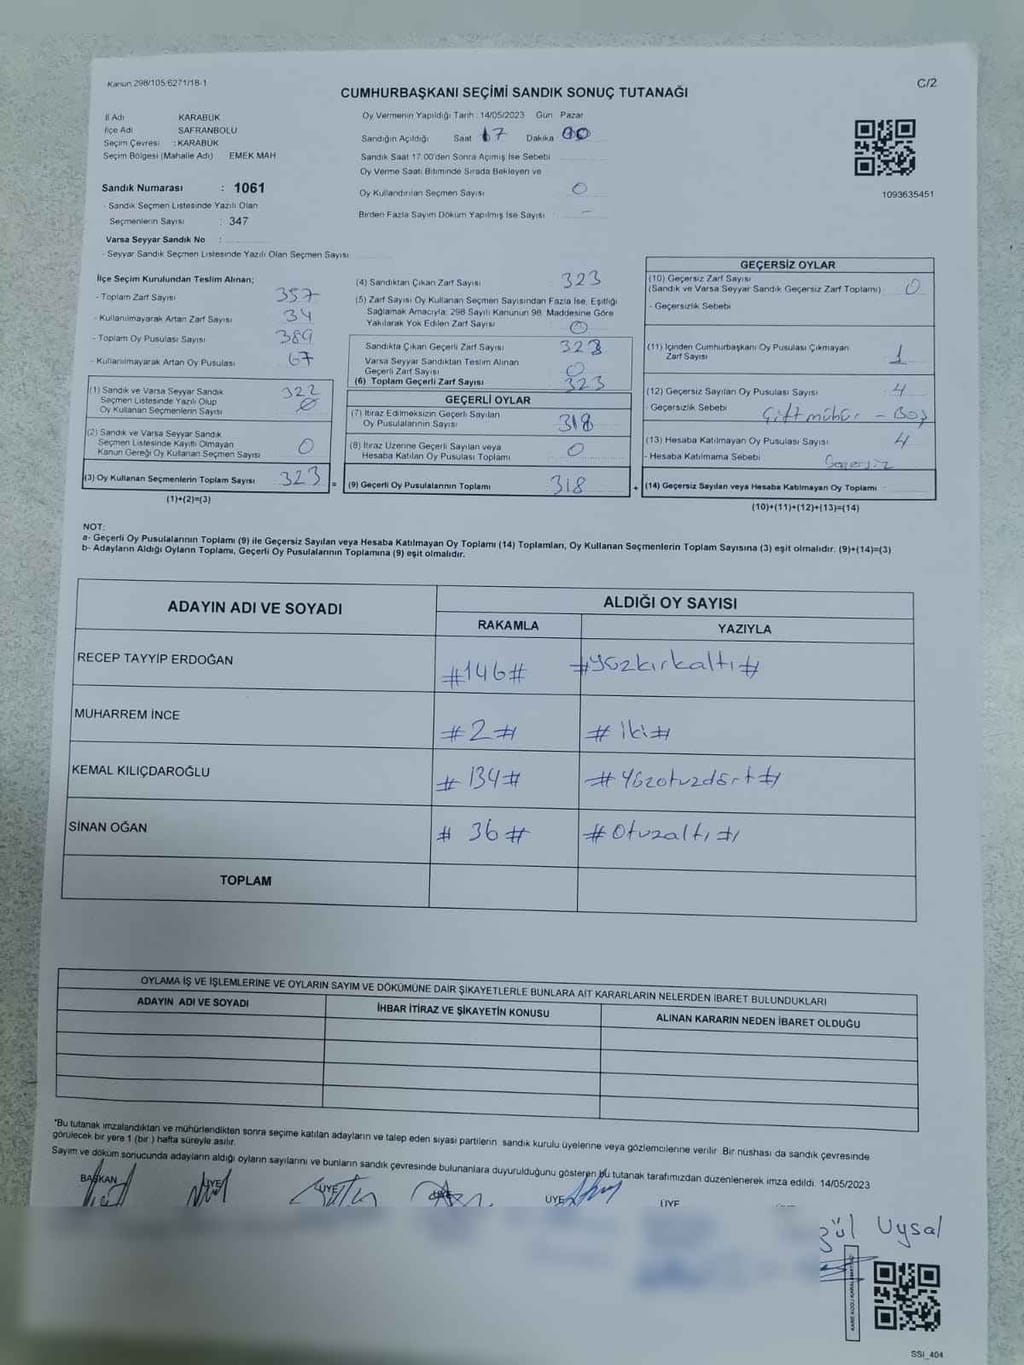 Kanun 298/105 6271/18-1
C/2
CUMHURBAŞKANI SEÇİMİ SANDIK SONUÇ TUTANAĞI
İl Adı KARABÜK
İlçe Adı SAFRANBOLU
Seçim Çevresi : KARABÜK
Seçim Bölgesi (Mahalle Adı) EMEK MAH
Sandık Numarası : 1061
- Sandık Seçmen Listesinde Yazılı Olan
Seçmenlerin Sayısı : 347
Varsa Seyyar Sandık No :
- Seyyar Sandık Seçmen Listesinde Yazılı Olan Seçmen Sayısı
Oy Vermenin Yapıldığı Tarih : 14/05/2023 Gün Pazar
Sandığın Açıldığı Saat 17 Dakika 00
Sandık Saat 17.00'den Sonra Açımış İse Sebebi
Oy Verme Saati Bitiminde Sırada Bekleyen ve
Oy Kullandırılan Seçmen Sayısı 0
Birden Fazla Sayım Döküm Yapılmış İse Sayısı : -
1093635451
İlçe Seçim Kurulundan Teslim Alınan;
- Toplam Zarf Sayısı 357
- Kullanılmayarak Artan Zarf Sayısı 34
- Toplam Oy Pusulası Sayısı 389
- Kullanılmayarak Artan Oy Pusulası 67
(1) Sandık ve Varsa Seyyar Sandık
Seçmen Listesinde Yazılı Olup
Oy Kullanan Seçmenlerin Sayısı 322
(2) Sandık ve Varsa Seyyar Sandık
Seçmen Listesinde Kayıtlı Olmayan
Kanun Gereği Oy Kullanan Seçmen Sayısı 0
(3) Oy Kullanan Seçmenlerin Toplam Sayısı 323
(1)+(2)=(3)
(4) Sandıktan Çıkan Zarf Sayısı 323
(5) Zarf Sayısı Oy Kullanan Seçmen Sayısından Fazla İse, Eşitliği
Sağlamak Amacıyla; 298 Sayılı Kanunun 98. Maddesine Göre
Yakılarak Yok Edilen Zarf Sayısı 0
Sandıkta Çıkan Geçerli Zarf Sayısı 323
Varsa Seyyar Sandıktan Teslim Alınan
Geçerli Zarf Sayısı 0
(6) Toplam Geçerli Zarf Sayısı 323
GEÇERLİ OYLAR
(7) İtiraz Edilmeksizin Geçerli Sayılan
Oy Pusulalarının Sayısı 318
(8) İtiraz Üzerine Geçerli Sayılan veya
Hesaba Katılan Oy Pusulası Toplamı 0
= (9) Geçerli Oy Pusulalarının Toplamı 318
GEÇERSİZ OYLAR
(10) Geçersiz Zarf Sayısı
(Sandık ve Varsa Seyyar Sandık Geçersiz Zarf Toplamı) 0
- Geçersizlik Sebebi
(11) İçinden Cumhurbaşkanı Oy Pusulası Çıkmayan
Zarf Sayısı 1
(12) Geçersiz Sayılan Oy Pusulası Sayısı 4
- Geçersizlik Sebebi Çift mühür - Boş
(13) Hesaba Katılmayan Oy Pusulası Sayısı 4
- Hesaba Katılmama Sebebi Geçersiz
+ (14) Geçersiz Sayılan veya Hesaba Katılmayan Oy Toplamı
(10)+(11)+(12)+(13)=(14)
NOT:
a- Geçerli Oy Pusulalarının Toplamı (9) ile Geçersiz Sayılan veya Hesaba Katılmayan Oy Toplamı (14) Toplamları, Oy Kullanan Seçmenlerin Toplam Sayısına (3) eşit olmalıdır. (9)+(14)=(3)
b- Adayların Aldığı Oyların Toplamı, Geçerli Oy Pusulalarının Toplamına (9) eşit olmalıdır.
ADAYIN ADI VE SOYADI ALDIĞI OY SAYISI
RAKAMLA YAZIYLA
RECEP TAYYİP ERDOĞAN #146# #yüzkırkaltı#
MUHARREM İNCE #2# #iki#
KEMAL KILIÇDAROĞLU #134# #yüzotuzdört#
SİNAN OĞAN #36# #Otuzaltı#
TOPLAM
OYLAMA İŞ VE İŞLEMLERİNE VE OYLARIN SAYIM VE DÖKÜMÜNE DAİR ŞİKAYETLERLE BUNLARA AİT KARARLARIN NELERDEN İBARET BULUNDUKLARI
ADAYIN ADI VE SOYADI İHBAR İTİRAZ VE ŞİKAYETİN KONUSU ALINAN KARARIN NEDEN İBARET OLDUĞU
"Bu tutanak imzalandıktan ve mühürlendikten sonra seçime katılan adayların ve talep eden siyasi partilerin sandık kurulu üyelerine veya gözlemcilerine verilir Bir nüshası da sandık çevresinde
görülecek bir yere 1 (bir ) hafta süreyle asılır.
Sayım ve döküm sonucunda adayların aldığı oyların sayılarını ve bunların sandık çevresinde bulunanlara duyurulduğunu gösteren bu tutanak tarafımızdan düzenlenerek imza edildi. 14/05/2023
BAŞKAN ÜYE ÜYE ÜYE ÜYE
gül Uysal
SSİ_404